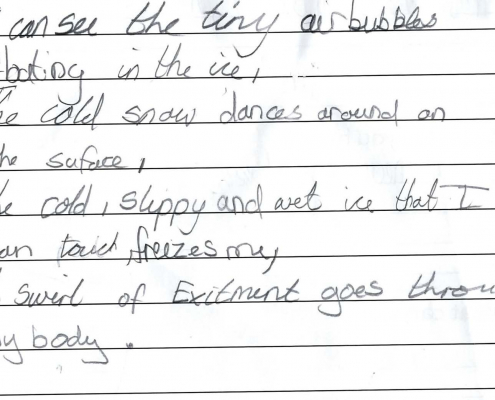 I can see the tiny airbubbles
boting in the ice,
he cold snow dances around on
he suface,
e cold, slippy and wet ice that I
an touch freezes my
swirl of Exitment goes throu
y body.